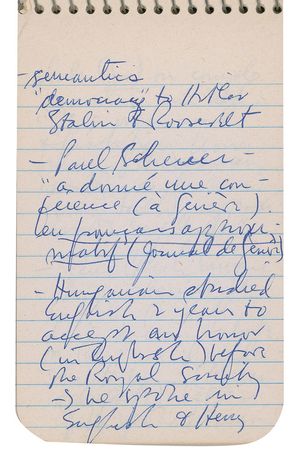 - semantics
"democracy" to Hitler
Stalin & Roosevelt
- Paul Scherrer -
"a donné une con-
férence (à Genève)
en français approxi-
matif" (Journal de Genève)
- Hungarian studied
English 2 years to
accept an honor
(in English) before
the Royal Society
→ he spoke in
English &